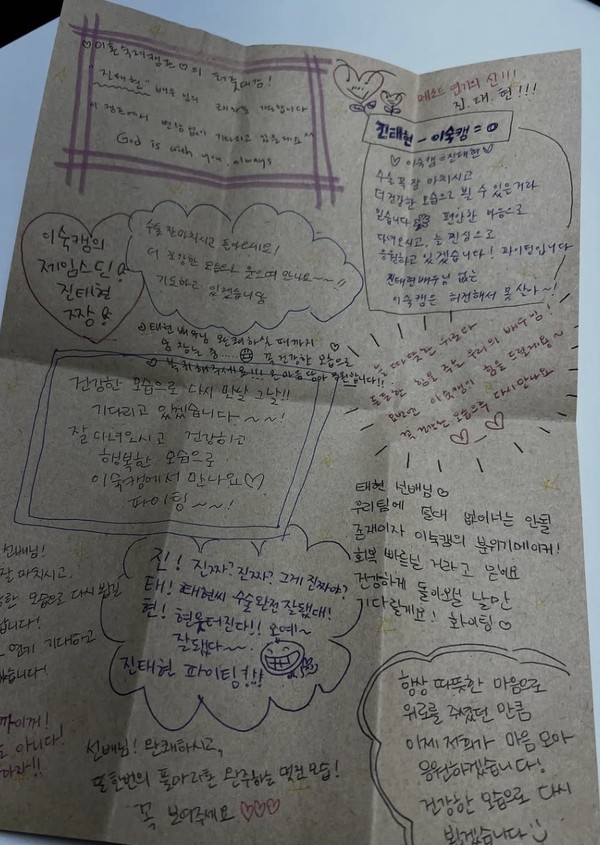 ♡이혼숙려캠프♡의 최고대장!
"진태현" 배우님의
이 캠프에서 변함없이 기다리고 있을게요^^
God is with you, always
메소드 연기의 신!!!
진.태.현!!!
진태현 - 이숙캠 = 0
♡ 이숙캠=진태현 ♡
수술 꼭 잘 마치시고
더 건강한 모습으로 뵐 수 있을거라
믿습니다 편안한 마음으로
다녀오시고, 늘 진심으로
응원하고 있겠습니다! 파이팅입니다
진태현 배우님 없는
이숙캠은 허전해서 못 살아~!
이숙캠의
제임스딘
진태현
짱
수술 잘 마치시고 돌아오세요!
더 건강한 모습으로 웃으며 만나요~~!!
기도하고 있겠습니다
태현 배우님 완쾌하실 때까지
꼭 건강한 모습으로
복귀해주세요!!! 온 마음 담아 응원합니다!!
늘 따뜻한 위로와
든든한 힘을 주는 우리의 배우님!
이번엔 이숙캠이 힘을 드릴게요~
꼭 건강한 모습으로 다시 만나요
건강한 모습으로 다시 만날 그날!!
기다리고 있겠습니다~~!
잘 다녀오시고 건강하고
행복한 모습으로
이숙캠에서 만나요♡
파이팅~~!
태현 선배님♡
우리팀에 절대 없어서는 안될
존재이자 이숙캠의 분위기메이커!
회복 빠르실 거라고 믿어요
건강하게 돌아오실 날만
기다릴게요! 화이팅♡
선배님!
잘 마치시고,
건강한 모습으로 다시 뵙는
연기 기대하고
진! 진짜? 진짜? 그게 진짜야?
태! 태현씨 수술 완전 잘됐대!
현! 현웃터진다!! 오예~
잘됐다~~
진태현 파이팅!!!
선배님! 완쾌하시고,
또 한번의 풀마라톤 완주하는 멋진 모습!
꼭 보여주세요 ♡♡♡
항상 따뜻한 마음으로
위로를 주셨던 만큼
이제 저희가 마음 모아
응원하겠습니다!
건강한 모습으로 다시
뵙겠습니다